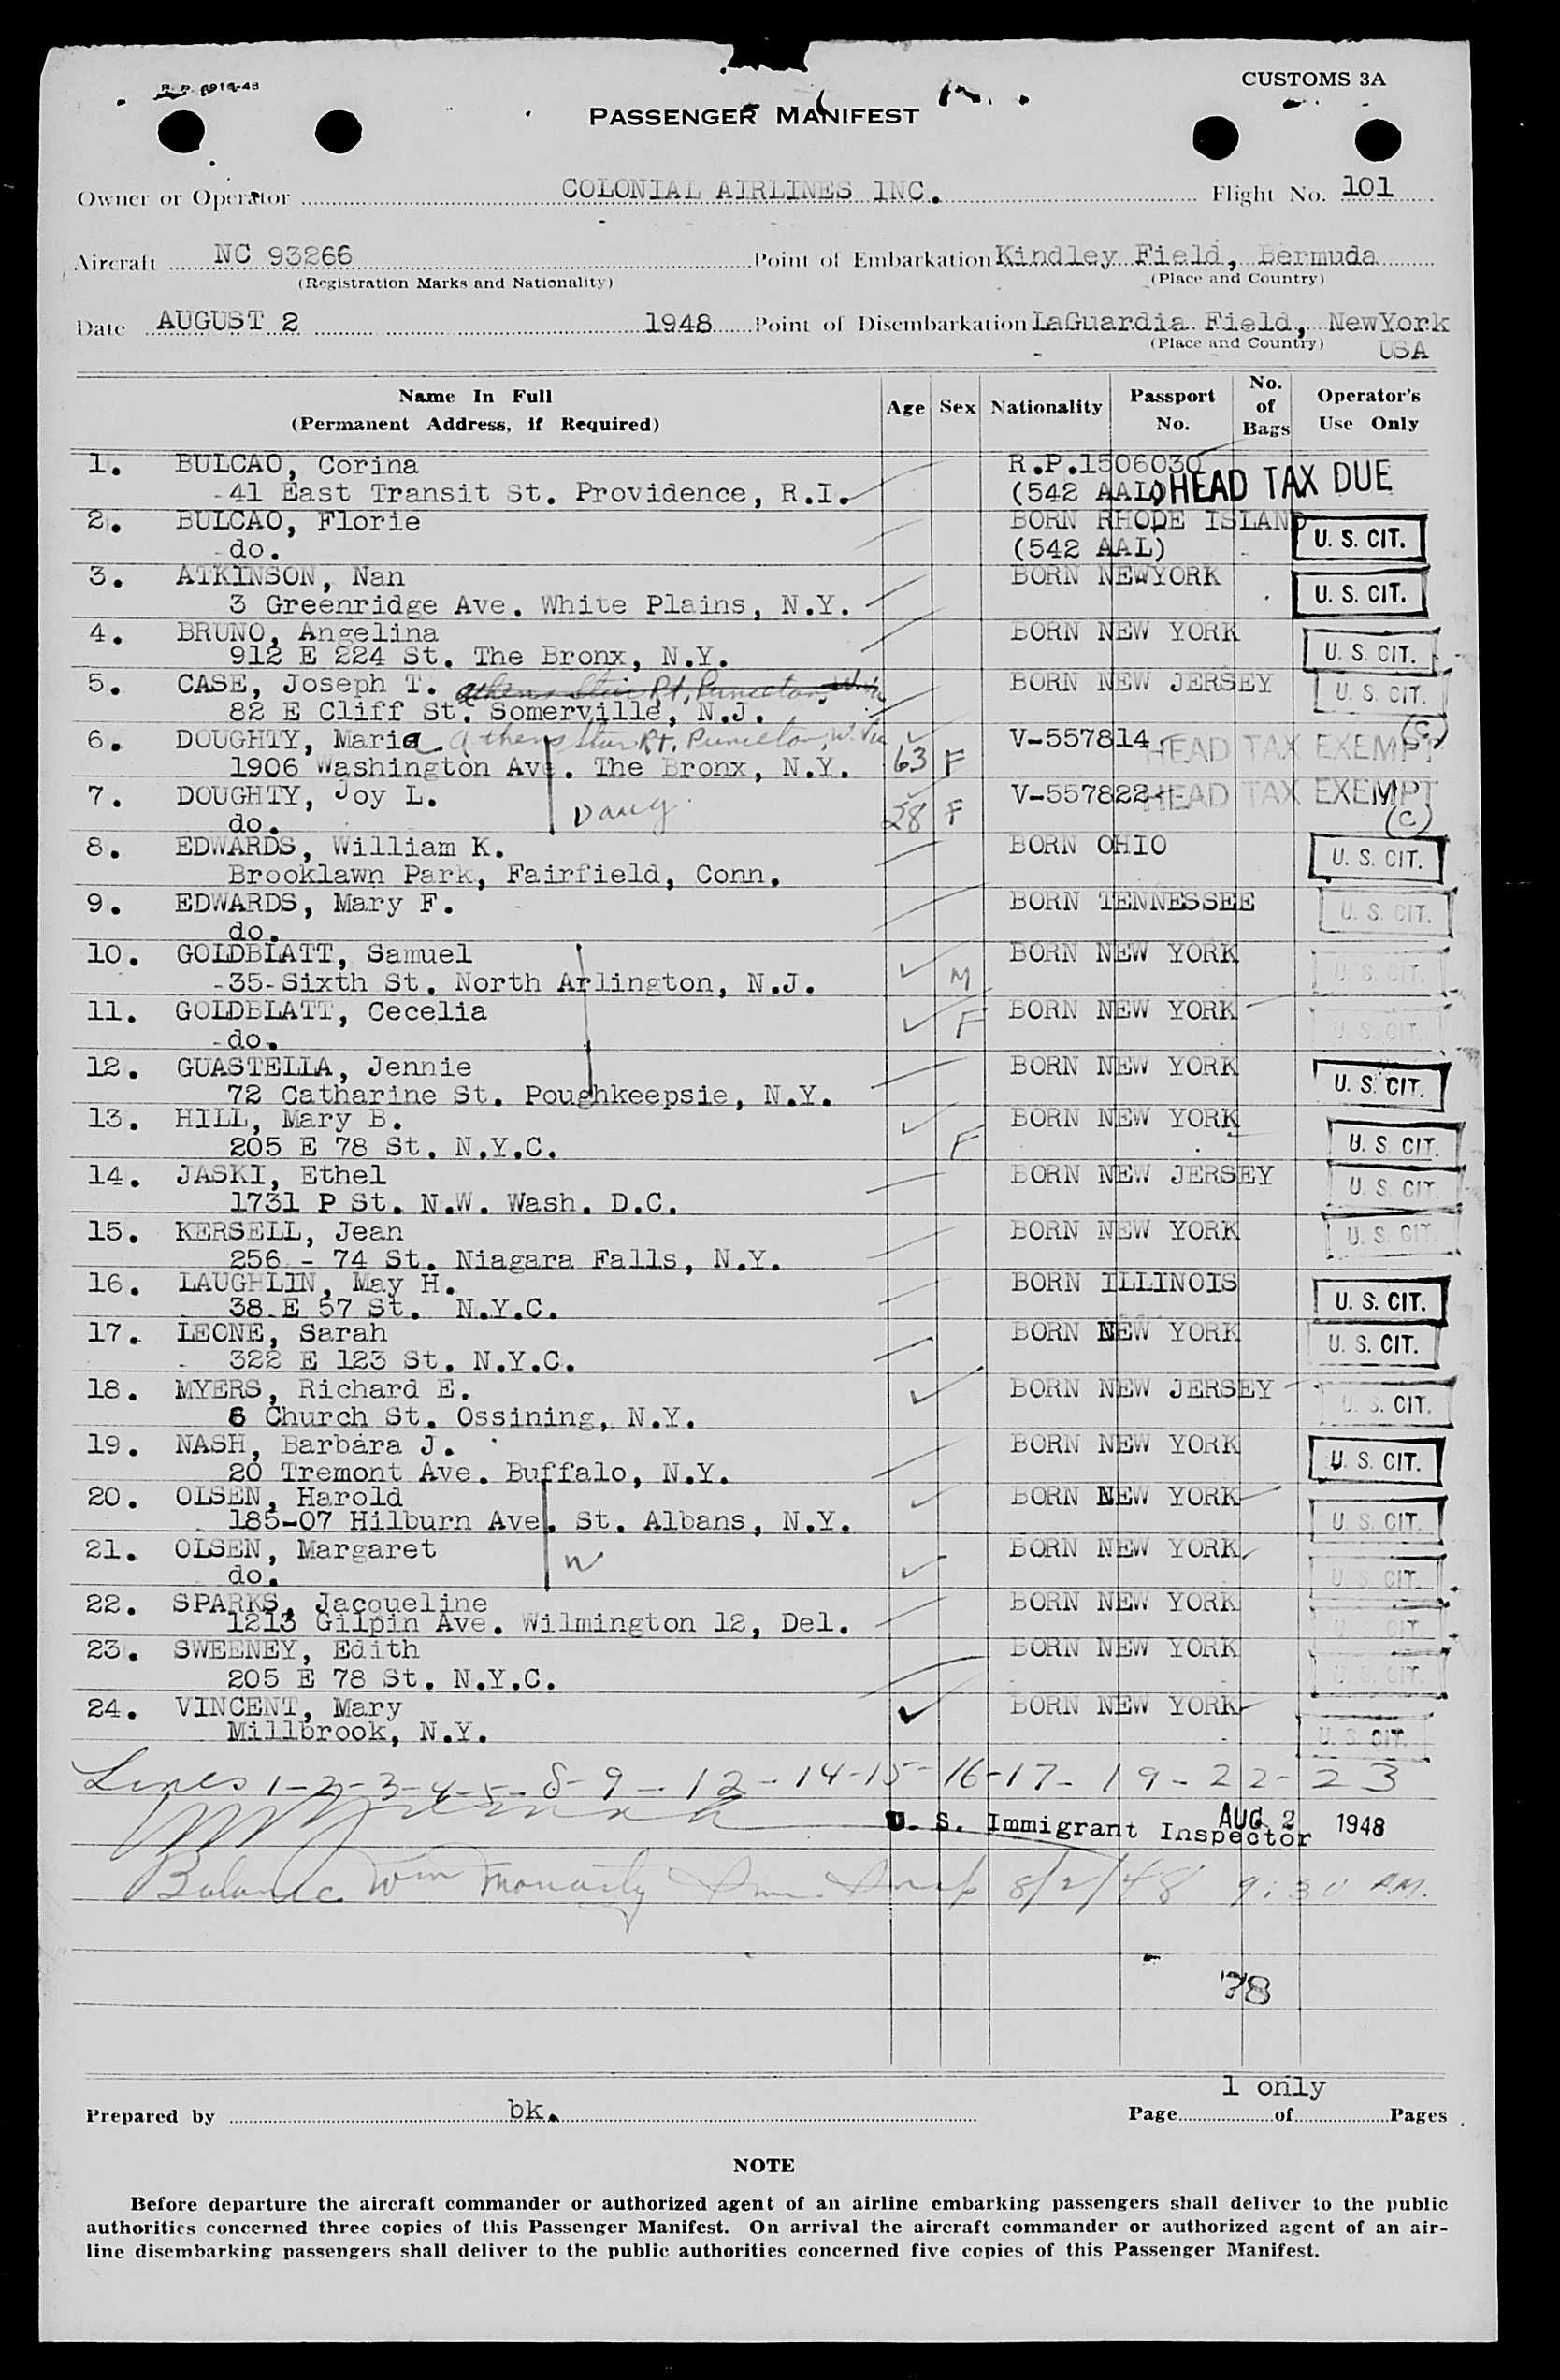 CUSTOMS 3A
PASSENGER MANIFEST
Owner or Operator COLONIAL AIRLINES INC. Flight No. 101
Aircraft NC 93266 Point of Embarkation Kindley Field, Bermuda
(Registration Marks and Nationality) (Place and Country)
Date AUGUST 2 1948 Point of Disembarkation LaGuardia Field, NewYork
(Place and Country) USA
Name In Full (Permanent Address, if Required) Age Sex Nationality Passport No. No. of Bags Operator's Use Only
1. BULCAO, Corina R.P.1506030
41 East Transit St. Providence, R.I. (542 AAL) HEAD TAX DUE
2. BULCAO, Florie BORN RHODE ISLAND
do. (542 AAL) U. S. CIT.
3. ATKINSON, Nan BORN NEWYORK
3 Greenridge Ave. White Plains, N.Y. U. S. CIT.
4. BRUNO, Angelina BORN NEW YORK
912 E 224 St. The Bronx, N.Y. U. S. CIT.
5. CASE, Joseph T. Athens Star Rt, Princeton, W. Va BORN NEW JERSEY
82 E Cliff St. Somerville, N.J. U. S. CIT.
6. DOUGHTY, Maria Athens Star Rt. Princeton, W. Va V-557814 HEAD TAX EXEMPT (C)
1906 Washington Ave. The Bronx, N.Y. 63 F
7. DOUGHTY, Joy L. Daug. 28 F V-557822 HEAD TAX EXEMPT
do. (C)
8. EDWARDS, William K. BORN OHIO U. S. CIT.
Brooklawn Park, Fairfield, Conn.
9. EDWARDS, Mary F. BORN TENNESSEE U. S. CIT.
do.
10. GOLDBLATT, Samuel BORN NEW YORK
35-Sixth St. North Arlington, N.J. M U. S. CIT.
11. GOLDBLATT, Cecelia F BORN NEW YORK U. S. CIT.
do.
12. GUASTELLA, Jennie BORN NEW YORK
72 Catharine St. Poughkeepsie, N.Y. U. S. CIT.
13. HILL, Mary B. BORN NEW YORK
205 E 78 St. N.Y.C. F U. S. CIT.
14. JASKI, Ethel BORN NEW JERSEY
1731 P St. N.W. Wash. D.C. U. S. CIT.
15. KERSELL, Jean BORN NEW YORK U. S. CIT.
256 - 74 St. Niagara Falls, N.Y.
16. LAUGHLIN, May H. BORN ILLINOIS
38 E 57 St. N.Y.C. U. S. CIT.
17. LEONE, Sarah BORN NEW YORK
322 E 123 St. N.Y.C. U. S. CIT.
18. MYERS, Richard E. BORN NEW JERSEY
6 Church St. Ossining, N.Y. U. S. CIT.
19. NASH, Barbara J. BORN NEW YORK
20 Tremont Ave. Buffalo, N.Y. U. S. CIT.
20. OLSEN, Harold BORN NEW YORK
185-07 Hilburn Ave. St. Albans, N.Y. U. S. CIT.
21. OLSEN, Margaret W BORN NEW YORK
do. U. S. CIT.
22. SPARKS, Jacqueline BORN NEW YORK
1213 Gilpin Ave. Wilmington 12, Del. U. S. CIT.
23. SWEENEY, Edith BORN NEW YORK
205 E 78 St. N.Y.C. U. S. CIT.
24. VINCENT, Mary BORN NEW YORK
Millbrook, N.Y. U. S. CIT.
Lines 1-2-3-4-5-8-9-12-14-15-16-17-19-22-23
U. S. Immigrant Inspector AUG 2 1948
Balance Wm Moriarty Imm. Insp 8/2/48 9:30 P.M.
78
1 only
Prepared by bk. Page of Pages
NOTE
Before departure the aircraft commander or authorized agent of an airline embarking passengers shall deliver to the public
authorities concerned three copies of this Passenger Manifest. On arrival the aircraft commander or authorized agent of an air-
line disembarking passengers shall deliver to the public authorities concerned five copies of this Passenger Manifest.